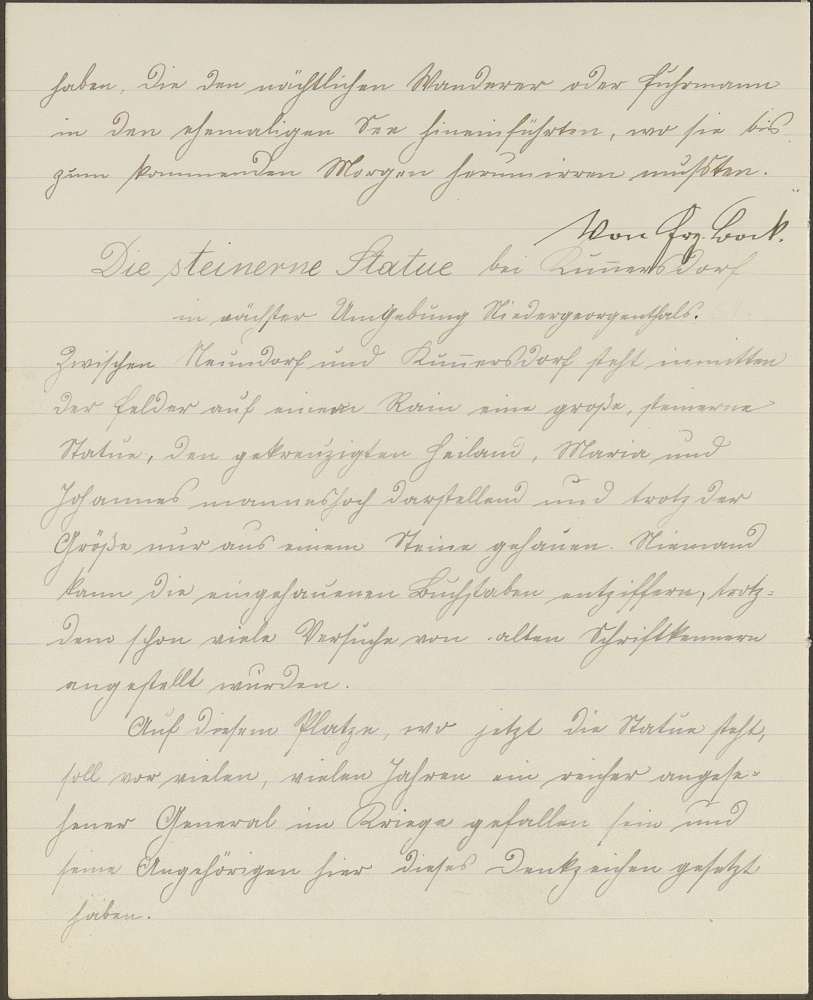 haben, die den nächtlichen Wanderer oder Fuhrmann
in den ehemaligen See hineinführten, wo sie bis
zum kommenden Morgen herumirren mußten.
Von Frz. Bock.
Die steinerne Statue bei Kunnersdorf
in nächster Umgebung Niedergeorgenthals.
Zwischen Neundorf und Kunnersdorf steht inmitten
der Felder auf einem Rain eine große, steinerne
Statue, den gekreuzigten Heiland, Maria und
Johannes manneshoch darstellend und trotz der
Größe nur aus einem Steine gehauen. Niemand
kann die eingehauenen Buchstaben entziffern, trotz-
dem schon viele Versuche von alten Schriftkennern
angestellt wurden.
Auf diesem Platze, wo jetzt die Statue steht,
soll vor vielen, vielen Jahren ein reicher angese-
hener General im Kriege gefallen sein und
seine Angehörigen hier dieses Denkzeichen gesetzt
haben.